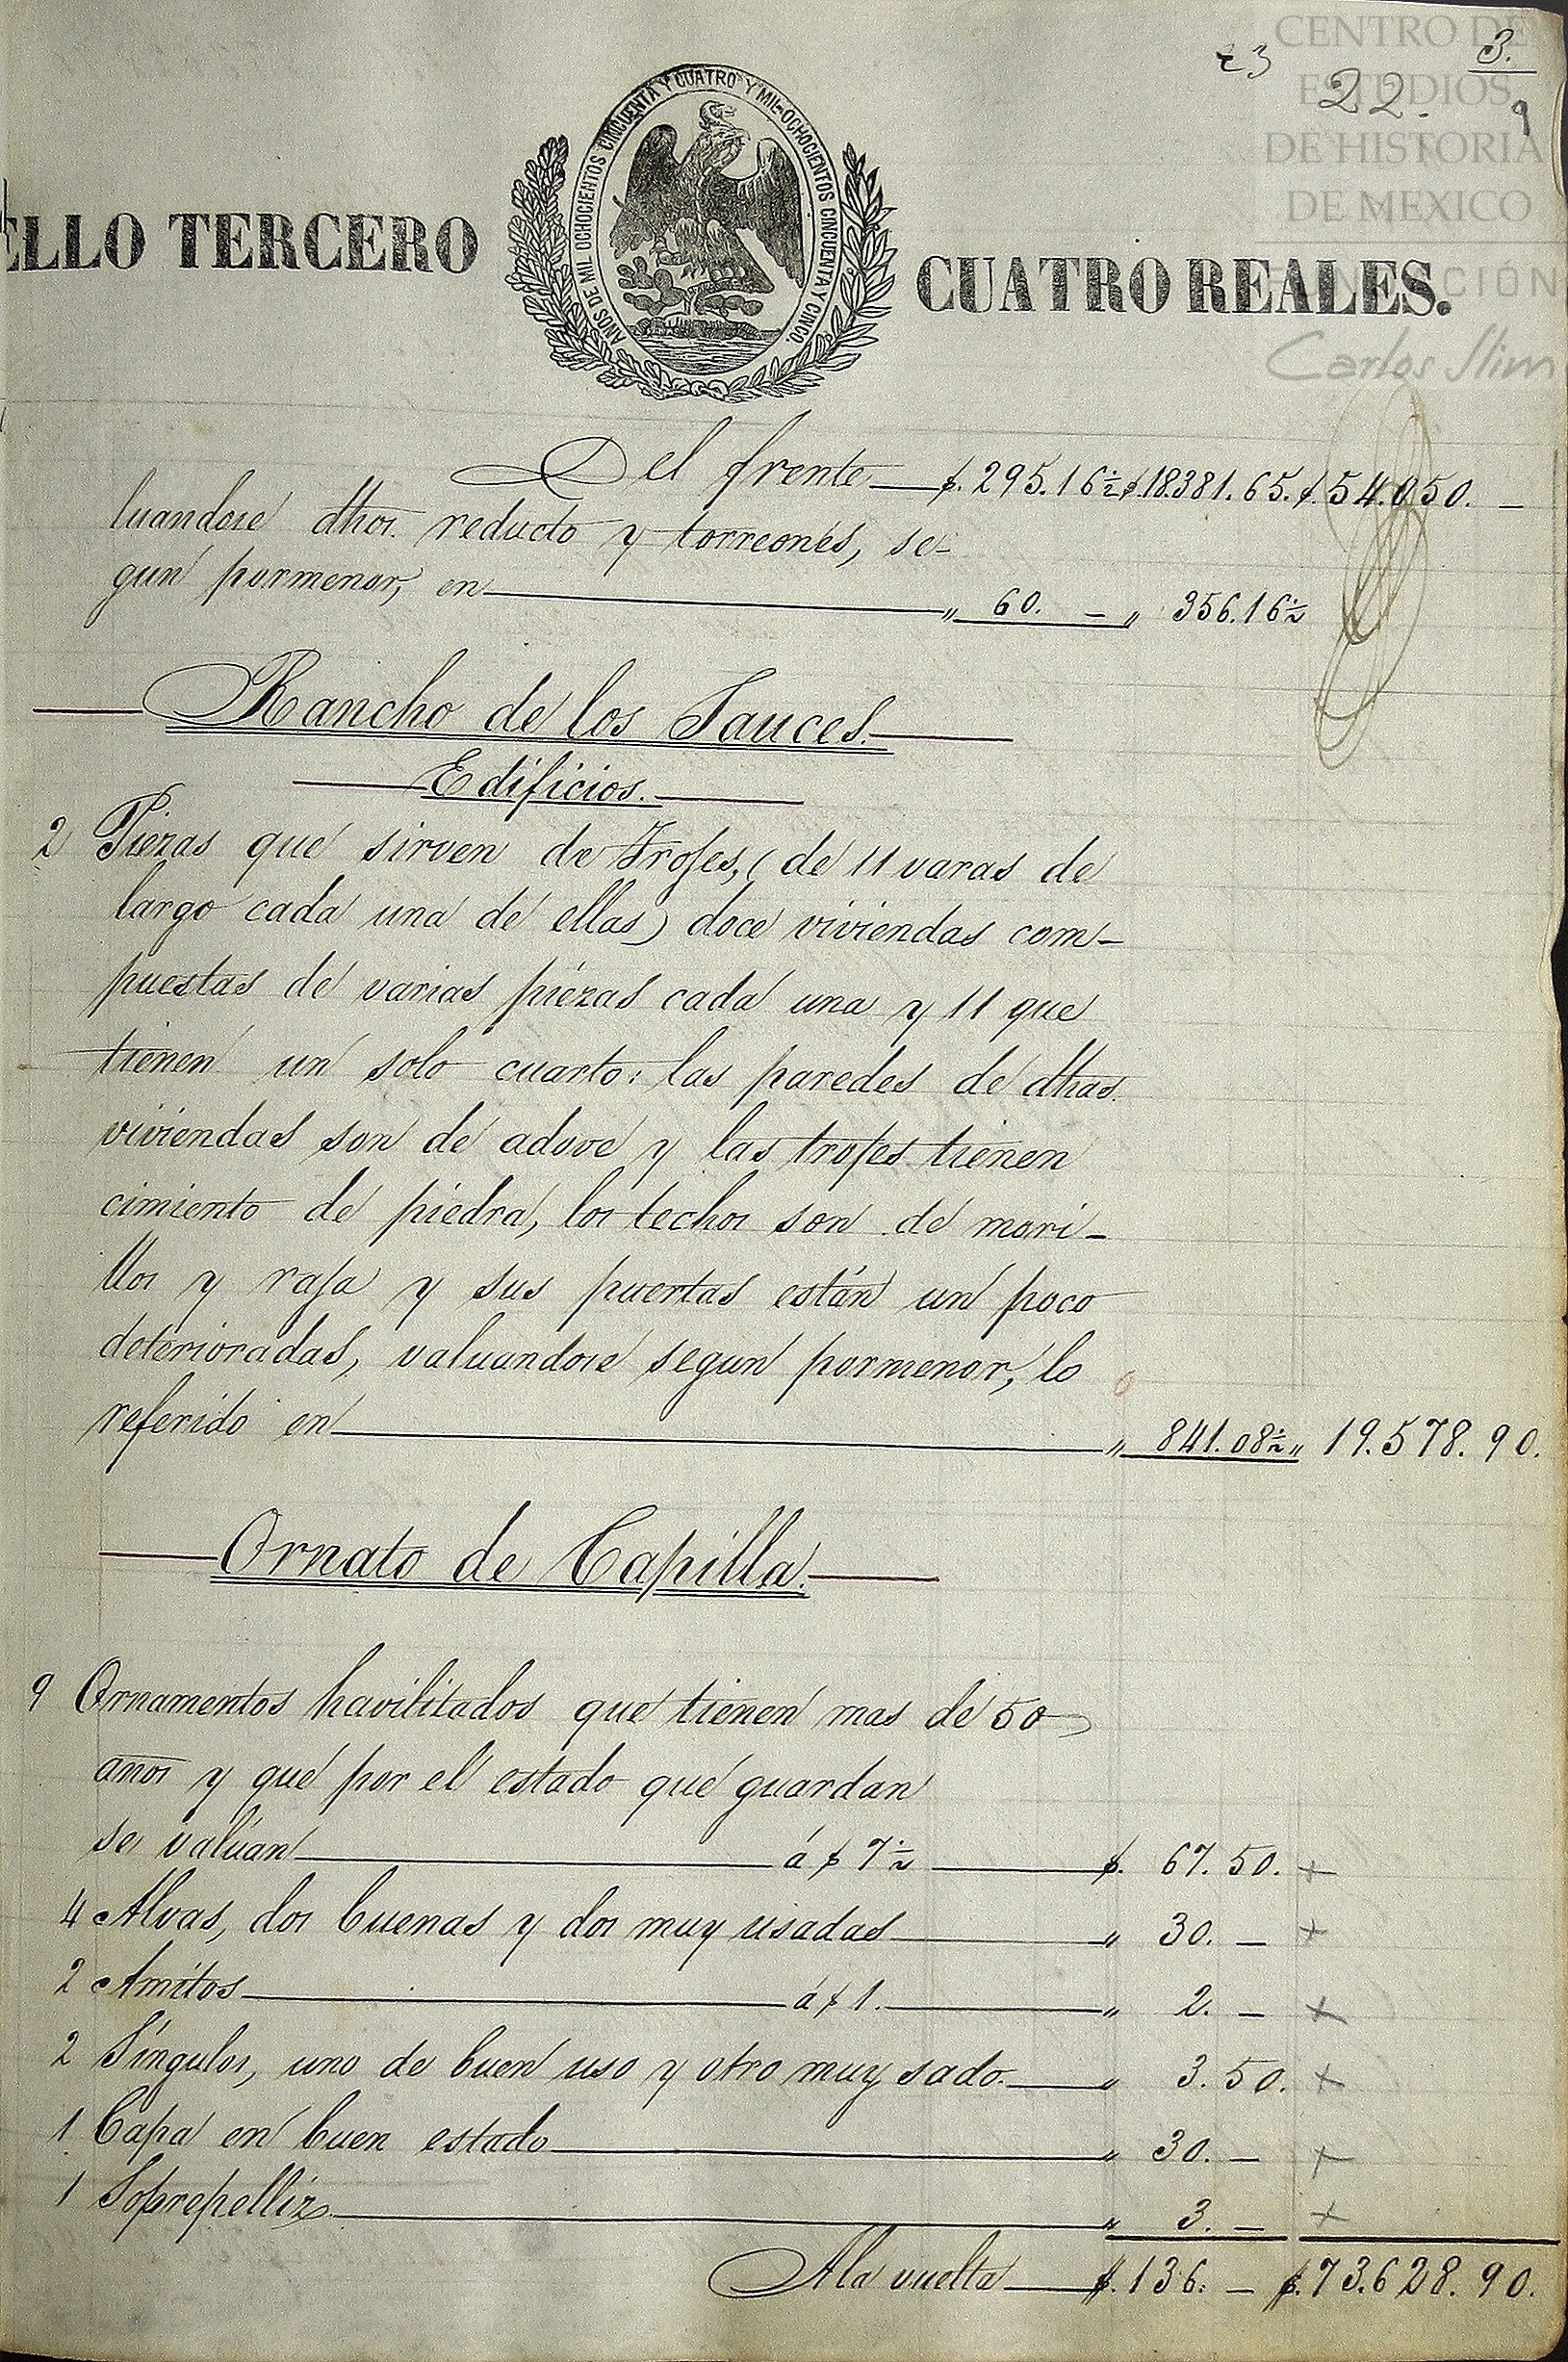 CENTRO DE
ESTUDIOS
DE HISTORIA
DE MEXICO
FUNDACIÓN
Carlos Slim
23
3.
22.
9
ELLO TERCERO
AÑOS DE MIL OCHOCIENTOS CINCUENTA Y CUATRO Y MIL OCHOCIENTOS CINCUENTA Y CINCO.
CUATRO REALES.
Del frente $. 295.16½ $.18381.65. $. 54.050. —
luandose dhos. reducto y torreones, se-
gun pormenor, en " 60. — " 356.16½
Rancho de los Sauces.
Edificios.
2 Piezas que sirven de Trojes, (de 11 varas de
largo cada una de ellas) doce viviendas com-
puestas de varias piezas cada una y 11 que
tienen un solo cuarto: las paredes de dhas.
viviendas son de adove y las trojes tienen
cimiento de piedra, los techos son de mori-
llos y raja y sus puertas están un poco
deterioradas, valuandose segun pormenor, lo
referido en " 841.08½ " 19.578.90.
Ornato de Capilla.
9 Ornamentos havilitados que tienen mas de 50
años y que por el estado que guardan
se valúan á $ 7½ $. 67.50. +
4 Alvas, dos buenas y dos muy usadas " 30. — +
2 Amitos á $ 1. " 2. — +
2 Síngulos, uno de buen uso y otro muy sado. " 3.50. +
1 Capa en buen estado " 30. — +
1 Soprepelliz " 3. — +
A la vuelta $. 136. — $. 73.628.90.